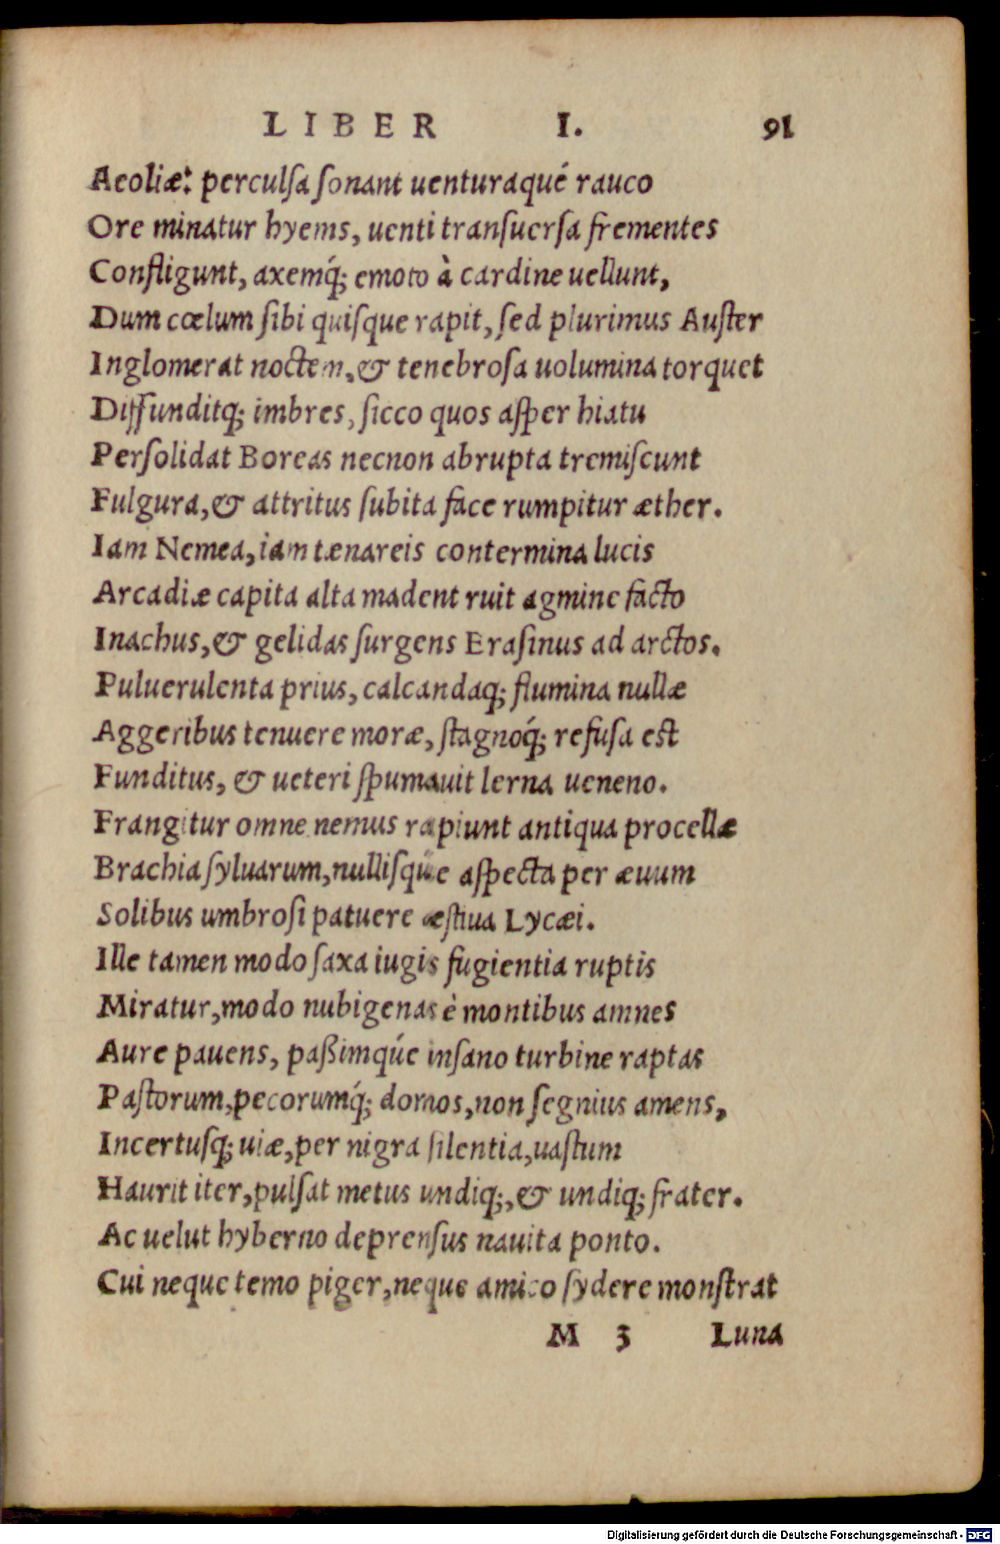 LIBER I. 91
Aeoliæ: perculſa ſonant uenturaqué rauco
Ore minatur hyems, uenti tranſuerſa frementes
Confligunt, axemq́; emoto à cardine uellunt,
Dum cœlum ſibi quiſque rapit, ſed plurimus Auſter
Inglomerat noctem, & tenebroſa uolumina torquet
Diffunditq; imbres, ſicco quos aſper hiatu
Perſolidat Boreas necnon abrupta tremiſcunt
Fulgura, & attritus ſubita face rumpitur æther.
Iam Nemea, iam tænareis contermina lucis
Arcadiæ capita alta madent ruit agmine facto
Inachus, & gelidas ſurgens Eraſinus ad arctos.
Puluerulenta prius, calcandaq; flumina nullæ
Aggeribus tenuere moræ, ſtagnoq́; refuſa eſt
Funditus, & ueteri ſpumauit lerna ueneno.
Frangitur omne nemus rapiunt antiqua procellæ
Brachia ſyluarum, nulliſqúe aſpecta per æuum
Solibus umbroſi patuere æſtiua Lycæi.
Ille tamen modo ſaxa iugis fugientia ruptis
Miratur, modo nubigenas è montibus amnes
Aure pauens, paßimqúe inſano turbine raptas
Paſtorum, pecorumq́; domos, non ſegnius amens,
Incertuſq; uiæ, per nigra ſilentia, uaſtum
Haurit iter, pulſat metus undiq;, & undiq; frater.
Ac uelut hyberno deprenſus nauita ponto.
Cui neque temo piger, neque amico ſydere monſtrat
M 3 Luna
Digitalisierung gefördert durch die Deutsche Forschungsgemeinschaft - DFG